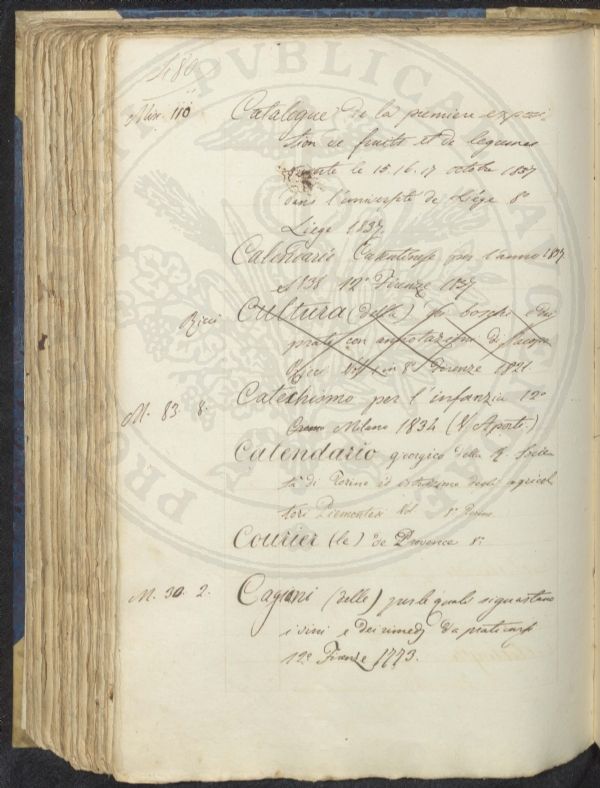 Mis. 110 Catalogue de la premiere exposi
tion de fruits et de legumes
le 15. 16. 17 octobre 1837
dans l'université de Liége 8°
Liege 1837.
Calendario per l'anno 1837
1838 12° Firenze 1837
Ricci Cultura (della) pei boschi e dei
prati con annotazioni di
in 8° Firenze 1821
M. 83. 8. Catechismo per l'infanzia 12°
Milano 1834 (V. Aporti.)
Calendario georgico della R. Socie
tà di Torino ed istruzione degli agricol
tori Piemontesi Vol. 1° Torino
Courier (le) de Provence 8°
M. 30. 2. Cagioni (delle) per le quali si guastano
i vini e dei rimedj da praticarsi
12° Firenze 1773.